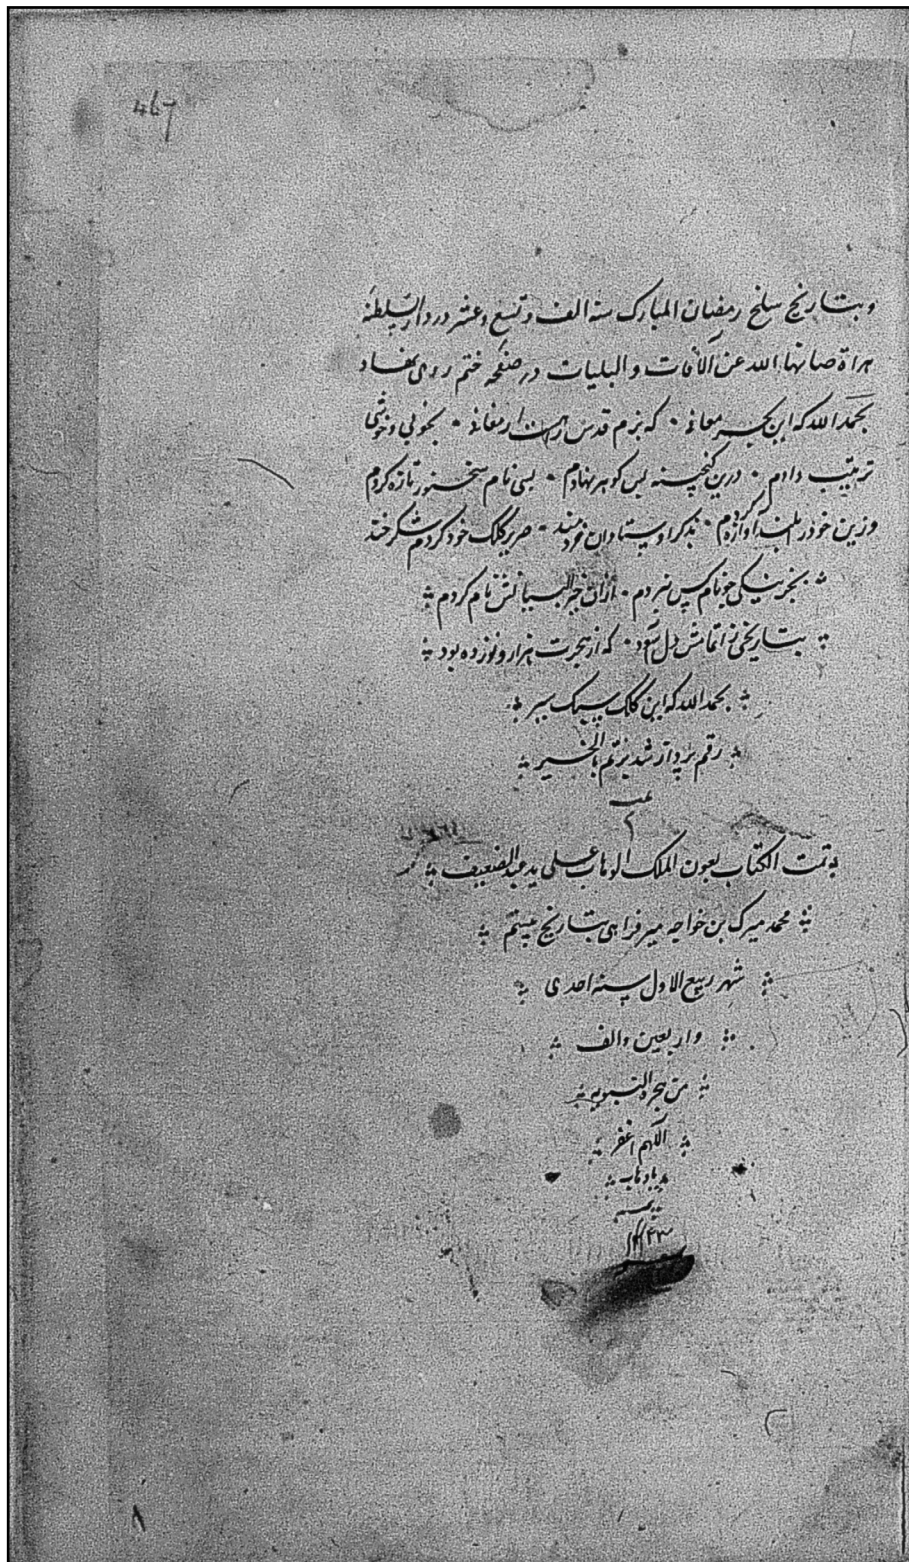 467
و بتاریخ سلخ رمضان المبارک سنه الف و تسع و عشر در دار السلطنه
هراة صانها الله عن الآفات و البلیات در صفحه ختم روی نهاد
بحمد الله که این بحر معانی • که بزم قدس را هست ارمغانی • بخوبی و خوشی
ترتیب دادم • درین گنجینه بس گوهر نهادم • بسی نام سخنور تازه کردم
وزین خود را بلند آوازه کردم • بذکر اوستادان خردمند • صریر کلک خود کردم شکرخند
بجز نیکی چو نام کس نبردم • ازان خیر البیانش نام کردم
بتاریخی ز اتمامش دل آسود • که از هجرت هزار و نوزده بود
بحمد الله که این کلک سبک سیر
رقم پرداز شد بر تم بالخیر
تمت الکتاب بعون الملک الوهاب علی ید عبد الضعیف
محمد میرک بن خواجه میر فراهی بتاریخ بیستم
شهر ربیع الاول سنه احدی
و اربعین و الف
من هجرة النبویه
اللهم اغفر
یا وهاب